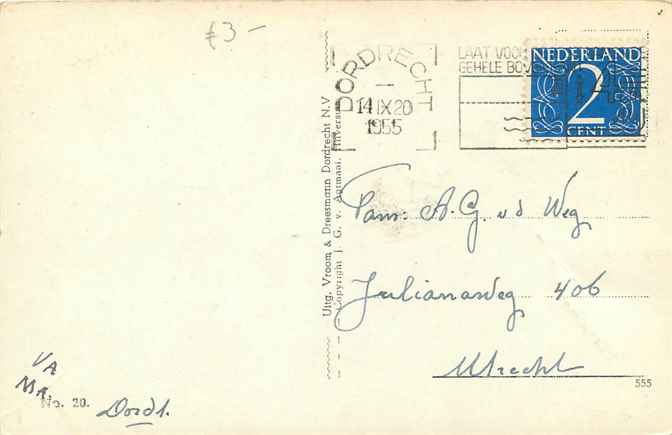 £3-
DORDRECHT
14 IX 20
1955
LAAT VOOR
GEHELE BOV
NEDERLAND
2
CENT
Uitg. Vroom & Dreesmann Dordrecht N.V.
Copyright J. G. v. Agtmaal, Hilversum
Fam: A. G. v d Weg
Julianaweg 406
Utrecht
555
VA
MA
No. 20.
Dordt.